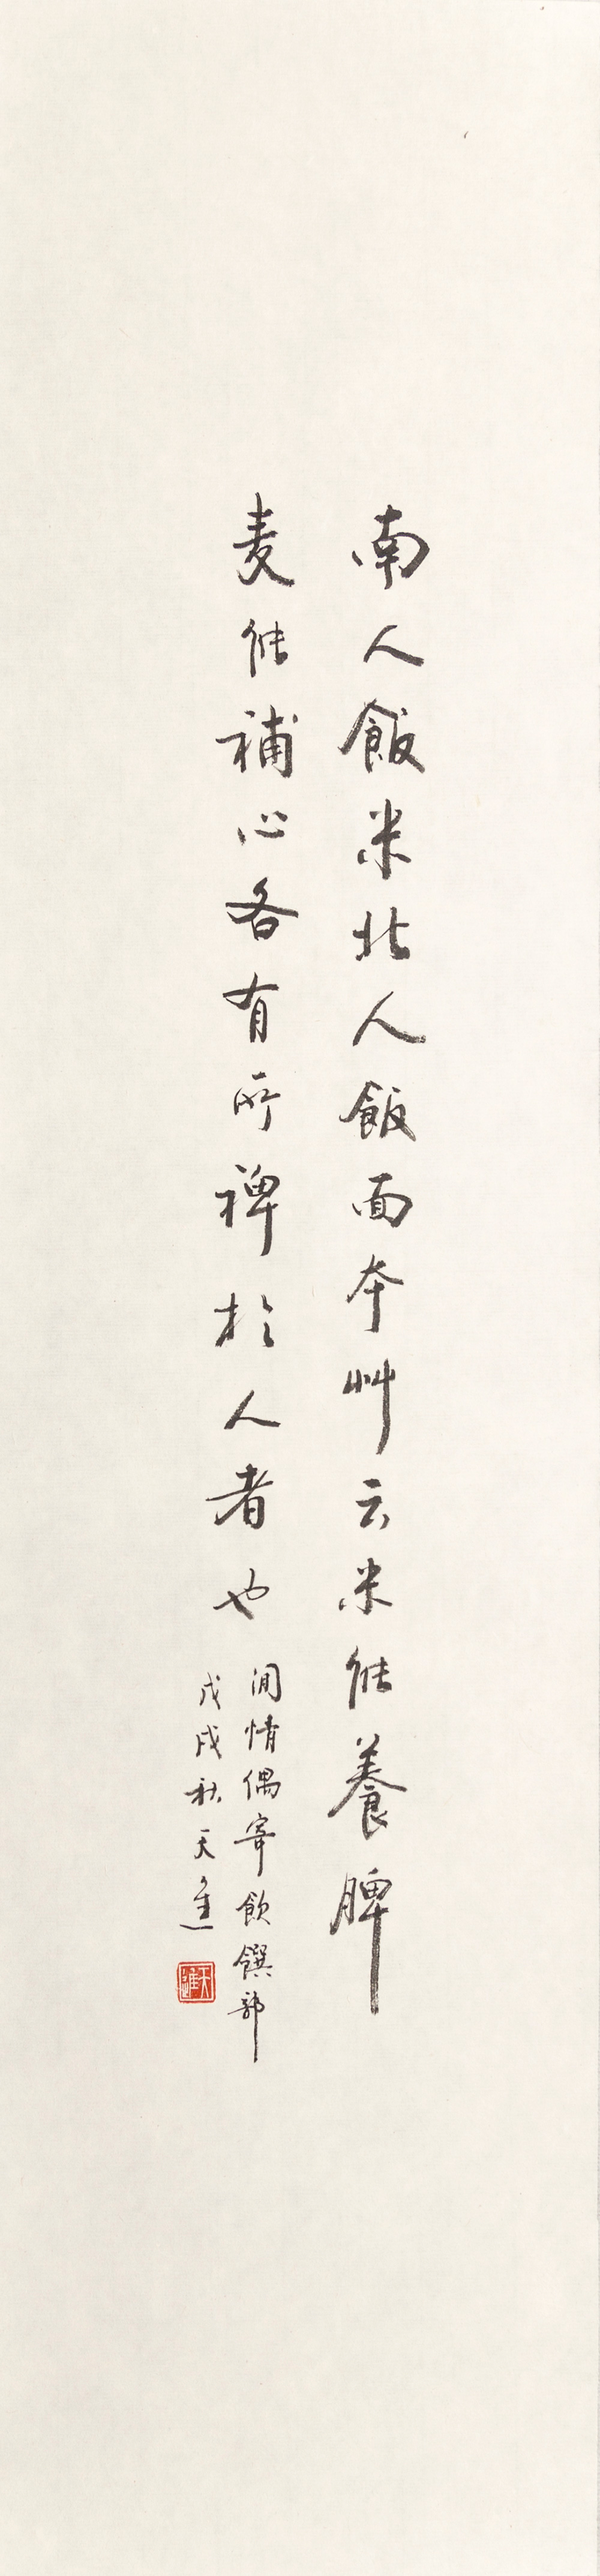 南人飯米北人飯面本艸云米能養脾
麦能補心各有所裨於人者也
閒情偶寄飲饌部
戊戌秋天進
天進